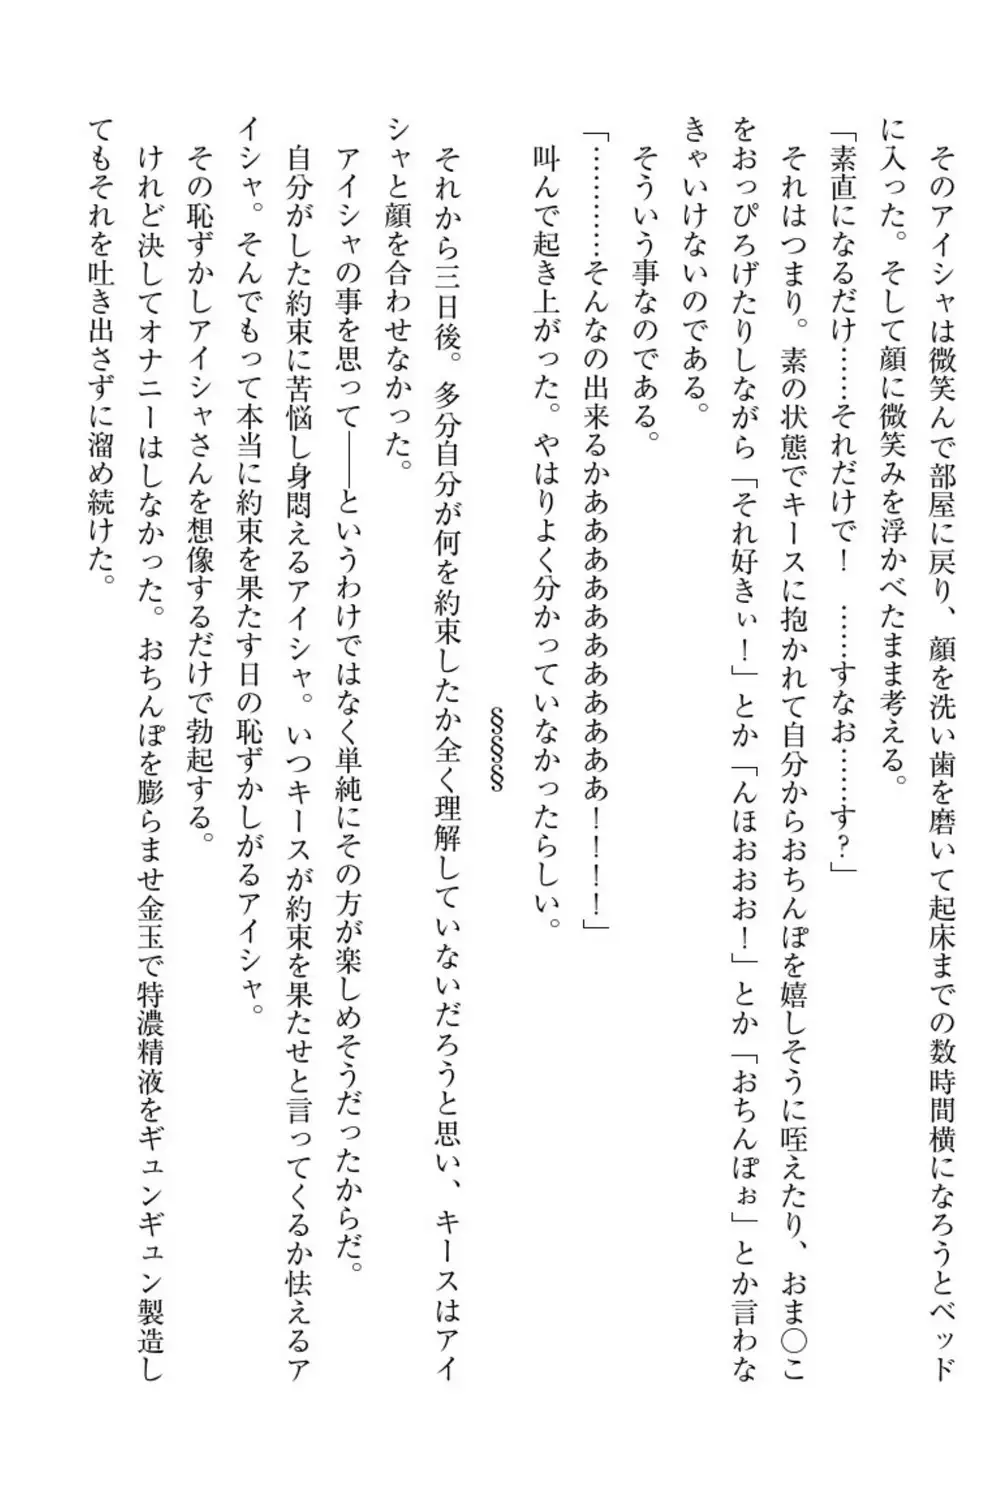 そのアイシャは微笑んで部屋に戻り、顔を洗い歯を磨いて起床までの数時間横になろうとベッド
に入った。そして顔に微笑みを浮かべたまま考える。
「素直になるだけ……それだけで！　……すなお……す？」
それはつまり。素の状態でキースに抱かれて自分からおちんぽを嬉しそうに咥えたり、おま〇こ
をおっぴろげたりしながら「それ好きぃ！」とか「んほおおお！」とか「おちんぽぉ」とか言わな
きゃいけないのである。
そういう事なのである。
「…………そんなの出来るかあああああああああああ！！！！」
叫んで起き上がった。やはりよく分かっていなかったらしい。
§§§§
それから三日後。多分自分が何を約束したか全く理解していないだろうと思い、キースはアイ
シャと顔を合わせなかった。
アイシャの事を思って――というわけではなく単純にその方が楽しめそうだったからだ。
自分がした約束に苦悩し身悶えるアイシャ。いつキースが約束を果たせと言ってくるか怯えるア
イシャ。そんでもって本当に約束を果たす日の恥ずかしがるアイシャ。
その恥ずかしアイシャさんを想像するだけで勃起する。
けれど決してオナニーはしなかった。おちんぽを膨らませ金玉で特濃精液をギュンギュン製造し
てもそれを吐き出さずに溜め続けた。